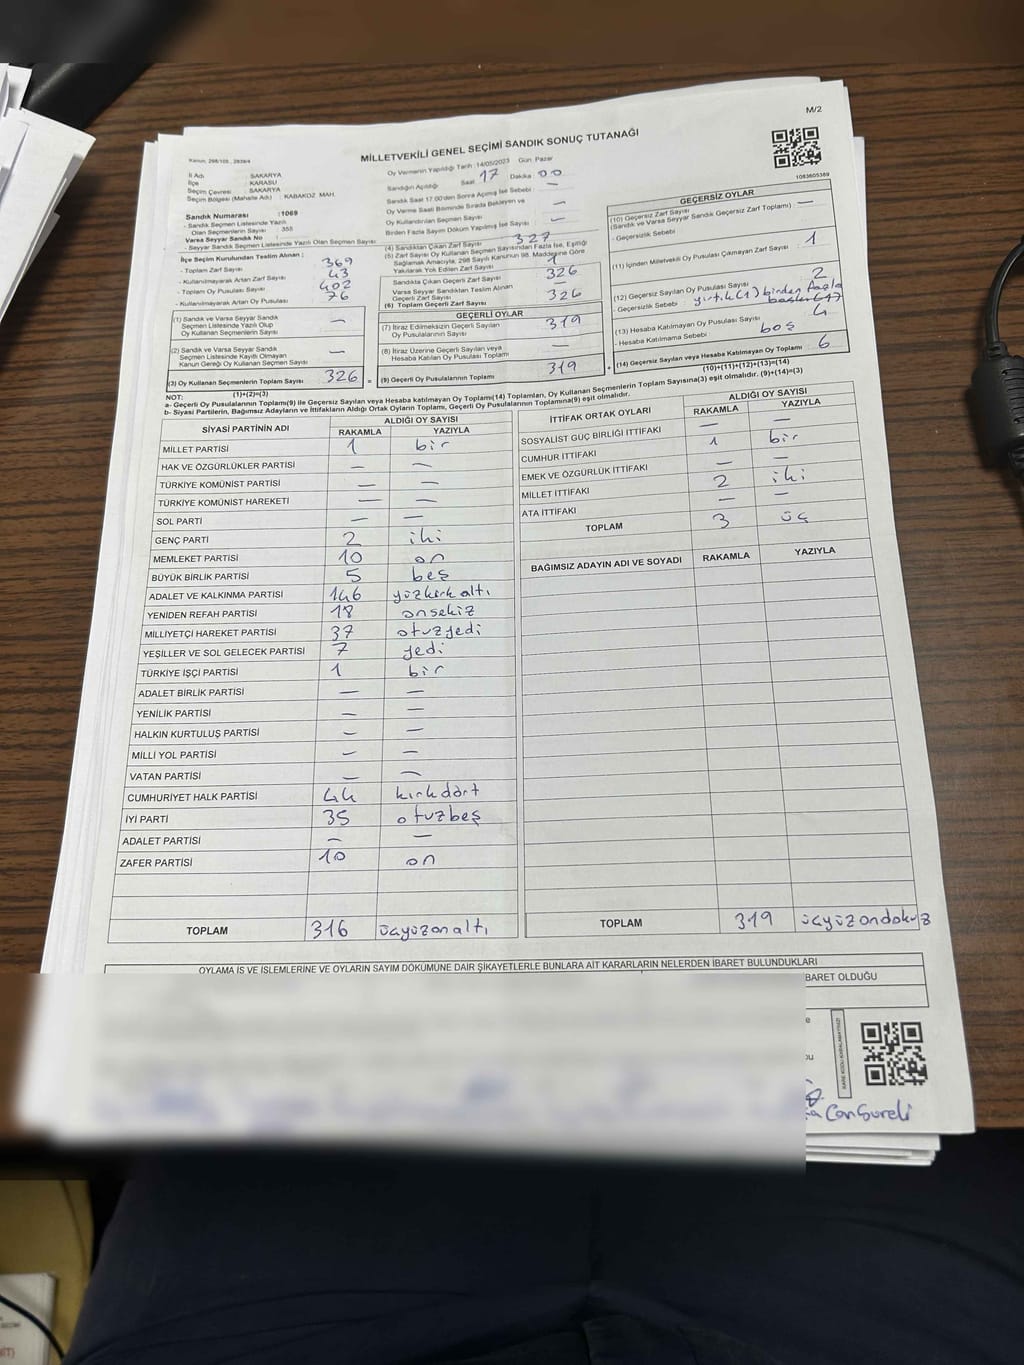 M/2
Kanun: 298/105 , 2839/4
MİLLETVEKİLİ GENEL SEÇİMİ SANDIK SONUÇ TUTANAĞI
1083605389
İl Adı : SAKARYA
İlçe : KARASU
Seçim Çevresi : SAKARYA
Seçim Bölgesi (Mahalle Adı) : KABAKOZ MAH.
Sandık Numarası : 1069
- Sandık Seçmen Listesinde Yazılı Olan Seçmenlerin Sayısı : 355
Varsa Seyyar Sandık No :
- Seyyar Sandık Seçmen Listesinde Yazılı Olan Seçmen Sayısı :
Oy Vermenin Yapıldığı Tarih : 14/05/2023 Gün: Pazar
Sandığın Açıldığı Saat 17 Dakika 00
Sandık Saat 17.00'den Sonra Açılmış İse Sebebi : —
Oy Verme Saati Bitiminde Sırada Bekleyen ve
Oy Kullandırılan Seçmen Sayısı —
Birden Fazla Sayım Döküm Yapılmış İse Sayısı : —
İlçe Seçim Kurulundan Teslim Alınan ;
- Toplam Zarf Sayısı : 369
- Kullanılmayarak Artan Zarf Sayısı : 43
- Toplam Oy Pusulası Sayısı : 402
- Kullanılmayarak Artan Oy Pusulası : 76
(1) Sandık ve Varsa Seyyar Sandık Seçmen Listesinde Yazılı Olup Oy Kullanan Seçmenlerin Sayısı —
(2) Sandık ve Varsa Seyyar Sandık Seçmen Listesinde Kayıtlı Olmayan Kanun Gereği Oy Kullanan Seçmen Sayısı —
(3) Oy Kullanan Seçmenlerin Toplam Sayısı 326
(1)+(2)=(3)
(4) Sandıktan Çıkan Zarf Sayısı 327
(5) Zarf Sayısı Oy Kullanan Seçmen Sayısından Fazla İse, Eşitliği Sağlamak Amacıyla, 298 Sayılı Kanunun 98. Maddesine Göre Yakılarak Yok Edilen Zarf Sayısı 1
Sandıkta Çıkan Geçerli Zarf Sayısı 326
Varsa Seyyar Sandıktan Teslim Alınan Geçerli Zarf Sayısı —
(6) Toplam Geçerli Zarf Sayısı 326
GEÇERLİ OYLAR
(7) İtiraz Edilmeksizin Geçerli Sayılan Oy Pusulalarının Sayısı: 319
(8) İtiraz Üzerine Geçerli Sayılan veya Hesaba Katılan Oy Pusulası Toplamı —
(9) Geçerli Oy Pusulalarının Toplamı 319
GEÇERSİZ OYLAR
(10) Geçersiz Zarf Sayısı
(Sandık ve Varsa Seyyar Sandık Geçersiz Zarf Toplamı) : —
- Geçersizlik Sebebi
(11) İçinden Milletvekili Oy Pusulası Çıkmayan Zarf Sayısı : 1
(12) Geçersiz Sayılan Oy Pusulası Sayısı : 2
- Geçersizlik Sebebi : yırtık(1) birden fazla
(13) Hesaba Katılmayan Oy Pusulası Sayısı : 4
- Hesaba Katılmama Sebebi : boş
(14) Geçersiz Sayılan veya Hesaba Katılmayan Oy Toplamı : 6
(10)+(11)+(12)+(13)=(14)
NOT:
a- Geçerli Oy Pusulalarının Toplamı(9) ile Geçersiz Sayılan veya Hesaba katılmayan Oy Toplamı(14) Toplamları, Oy Kullanan Seçmenlerin Toplam Sayısına(3) eşit olmalıdır. (9)+(14)=(3)
b- Siyasi Partilerin, Bağımsız Adayların ve İttifakların Aldığı Ortak Oyların Toplamı, Geçerli Oy Pusulalarının Toplamına(9) eşit olmalıdır.
SİYASİ PARTİNİN ADI ALDIĞI OY SAYISI
RAKAMLA YAZIYLA
MİLLET PARTİSİ 1 bir
HAK VE ÖZGÜRLÜKLER PARTİSİ — —
TÜRKİYE KOMÜNİST PARTİSİ — —
TÜRKİYE KOMÜNİST HAREKETİ — —
SOL PARTİ — —
GENÇ PARTİ 2 iki
MEMLEKET PARTİSİ 10 on
BÜYÜK BİRLİK PARTİSİ 5 beş
ADALET VE KALKINMA PARTİSİ 146 yüzkırk altı
YENİDEN REFAH PARTİSİ 18 onsekiz
MİLLİYETÇİ HAREKET PARTİSİ 37 otuzyedi
YEŞİLLER VE SOL GELECEK PARTİSİ 7 yedi
TÜRKİYE İŞÇİ PARTİSİ 1 bir
ADALET BİRLİK PARTİSİ — —
YENİLİK PARTİSİ — —
HALKIN KURTULUŞ PARTİSİ — —
MİLLİ YOL PARTİSİ — —
VATAN PARTİSİ — —
CUMHURİYET HALK PARTİSİ 44 kırkdört
İYİ PARTİ 35 otuzbeş
ADALET PARTİSİ — —
ZAFER PARTİSİ 10 on
TOPLAM 316 üçyüzonaltı
İTTİFAK ORTAK OYLARI ALDIĞI OY SAYISI
RAKAMLA YAZIYLA
SOSYALİST GÜÇ BİRLİĞİ İTTİFAKI — —
CUMHUR İTTİFAKI 1 bir
EMEK VE ÖZGÜRLÜK İTTİFAKI — —
MİLLET İTTİFAKI 2 iki
ATA İTTİFAKI — —
TOPLAM 3 üç
BAĞIMSIZ ADAYIN ADI VE SOYADI RAKAMLA YAZIYLA
TOPLAM 319 üçyüzondokuz
OYLAMA İŞ VE İŞLEMLERİNE VE OYLARIN SAYIM DÖKÜMÜNE DAİR ŞİKAYETLERLE BUNLARA AİT KARARLARIN NELERDEN İBARET BULUNDUKLARI
BARET OLDUĞU